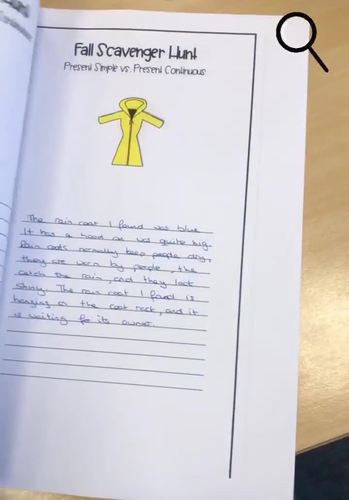 Fall Scavenger Hunt
Present Simple vs. Present Continuous
The rain coat I found was blue.
It has a hood an was quite big.
Rain coats normally keep people dry,
they are worn by people, the
catch the rain, and they look
shiny. The rain coat I found is
hanging on the coat rack, and it
is waiting for its owner.